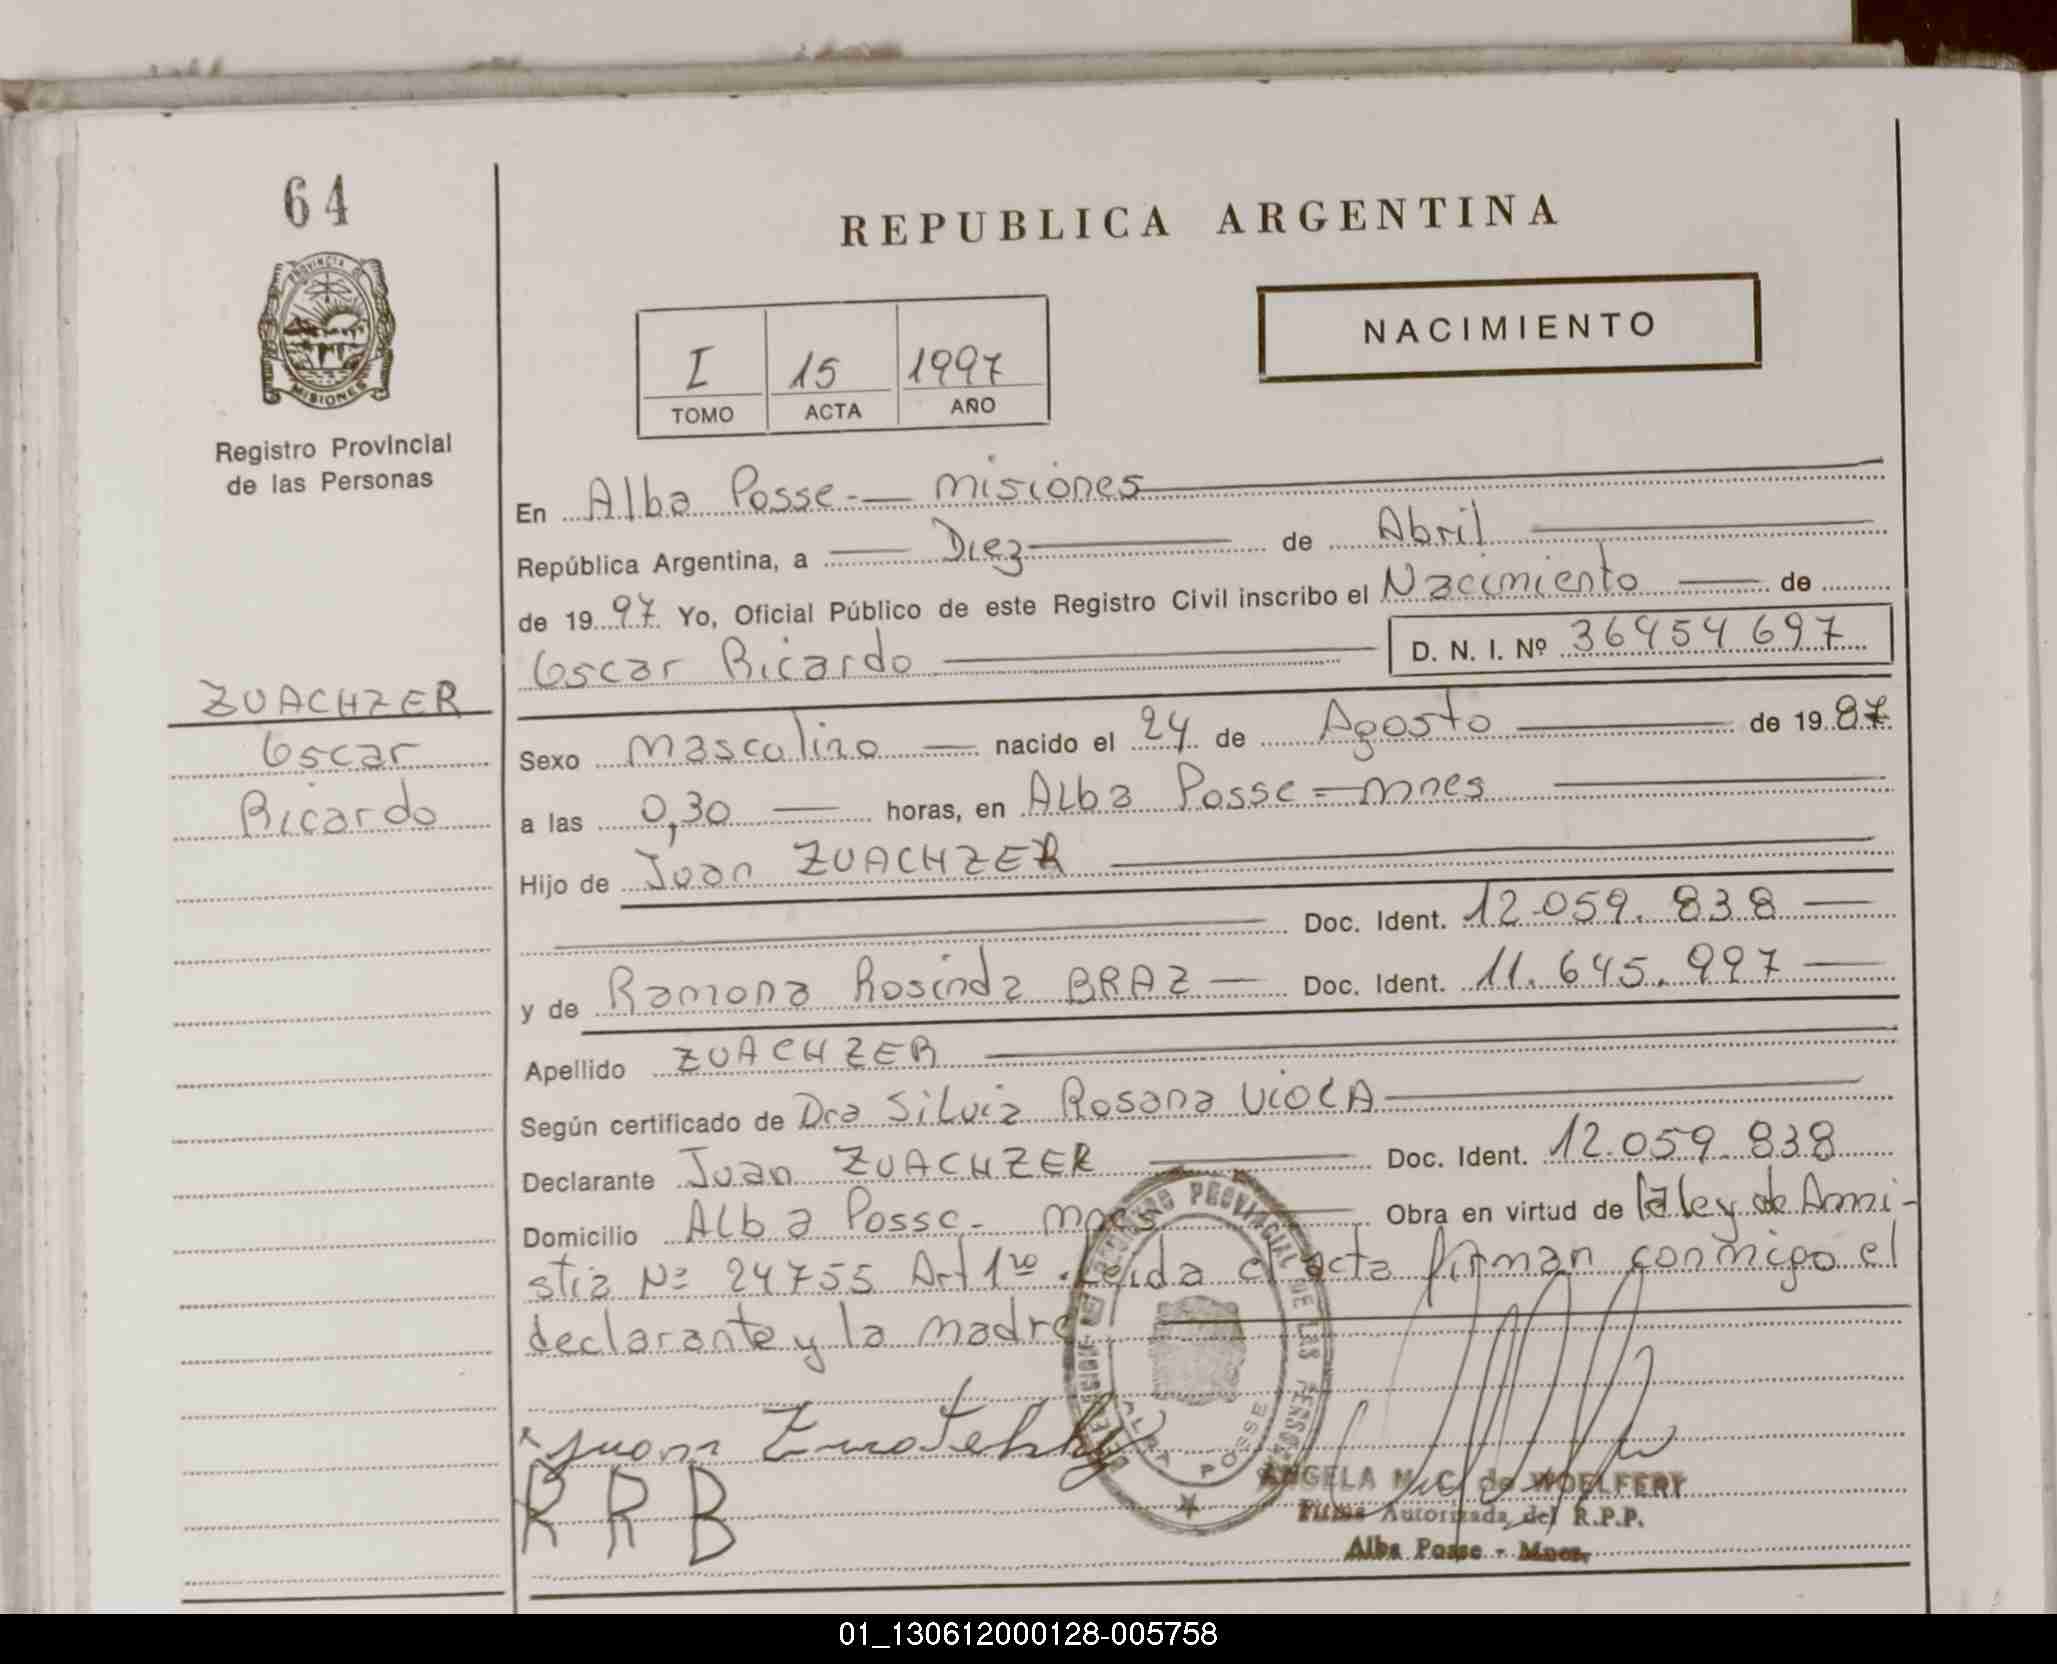 64
REPUBLICA ARGENTINA
PROVINCIA DE
MISIONES
Registro Provincial
de las Personas
I 15 1997
TOMO ACTA AÑO
NACIMIENTO
En Alba Posse - Misiones
República Argentina, a Diez de Abril
de 19 97 Yo, Oficial Público de este Registro Civil inscribo el Nacimiento de
Oscar Ricardo D. N. I. Nº 36454697
ZUACHZER
Oscar
Ricardo
Sexo Masculino nacido el 24 de Agosto de 19 87
a las 0,30 horas, en Alba Posse - Mnes
Hijo de Juan ZUACHZER
Doc. Ident. 12.059.838
y de Ramona Rosinda BRAZ Doc. Ident. 11.645.997
Apellido ZUACHZER
Según certificado de Dra Silvia Rosana VIOLA
Declarante Juan ZUACHZER Doc. Ident. 12.059.838
Domicilio Alba Posse - Mnes Obra en virtud de la ley de Amni-
stia Nº 24755 Art 1ro. Leida el acta firman conmigo el
declarante y la madre
REGISTRO PROVINCIAL DE LAS PERSONAS
ALBA POSSE
Juan
R R B
ANGELA M. C. de WOELFERT
Firma Autorizada del R.P.P.
Alba Posse - Mnes.
01_130612000128-005758